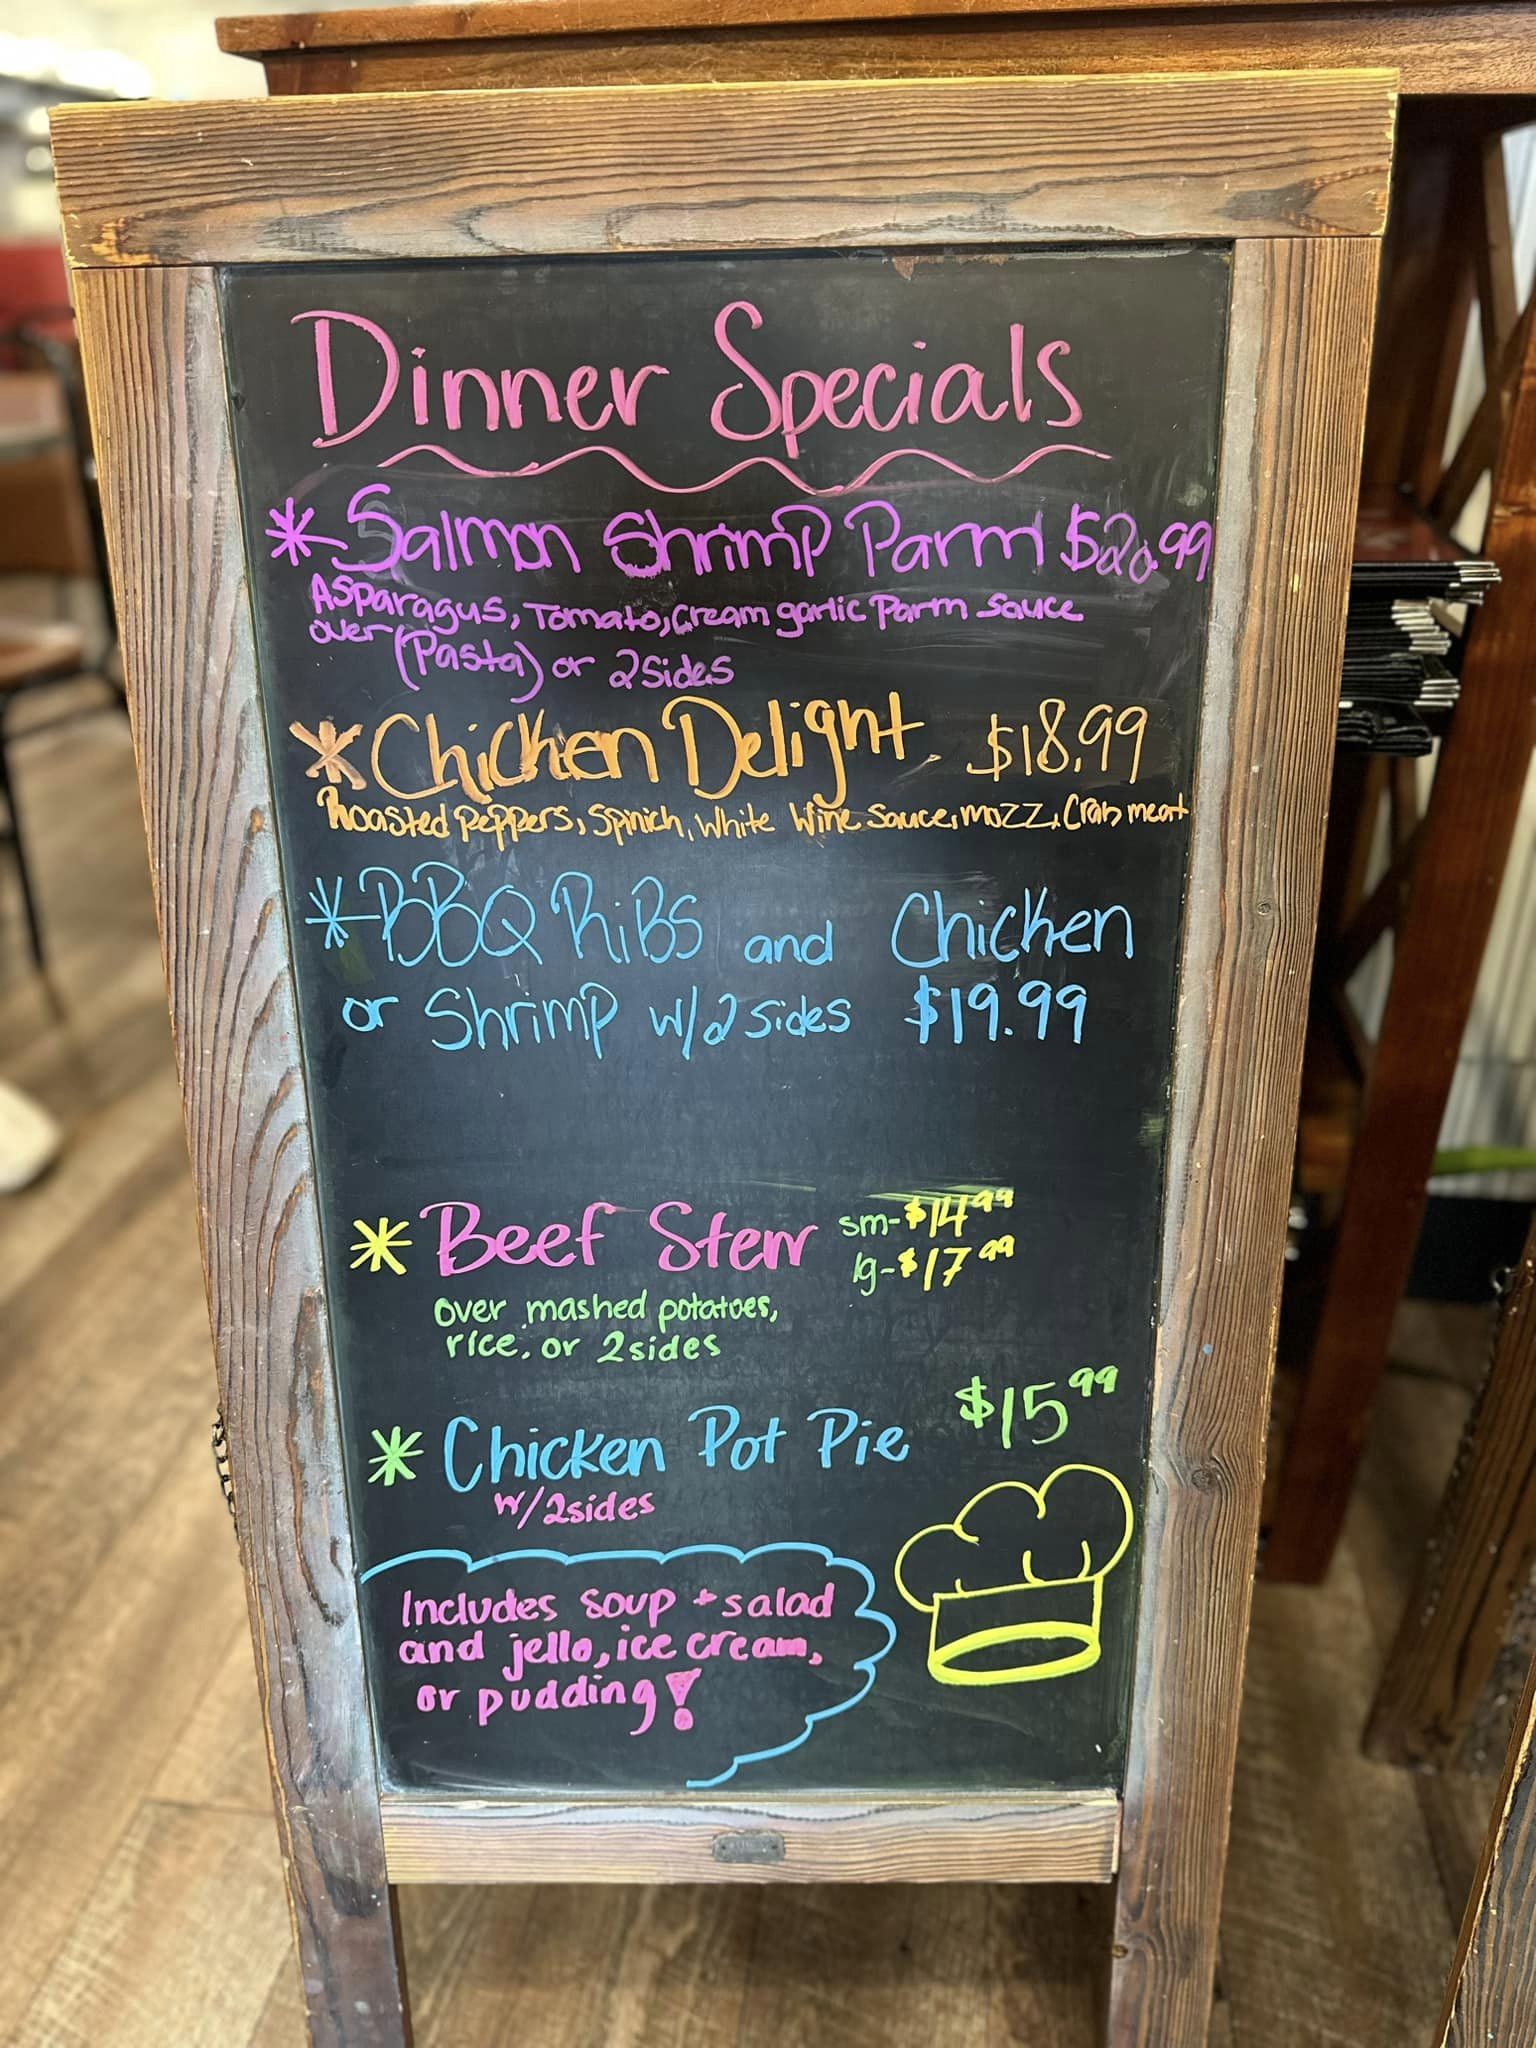 Dinner Specials
* Salmon Shrimp Parm $20.99
Asparagus, Tomato, Cream garlic Parm Sauce
over (Pasta) or 2 Sides
* Chicken Delight $18.99
Roasted Peppers, Spinich, White Wine Sauce, Mozz, Crab meat
* BBQ Ribs and Chicken
or Shrimp w/2 sides $19.99
* Beef Stew sm-$14.99
lg-$17.99
over mashed potatoes,
rice, or 2 sides
$15.99
* Chicken Pot Pie
w/2sides
Includes soup + salad
and jello, ice cream,
or pudding!